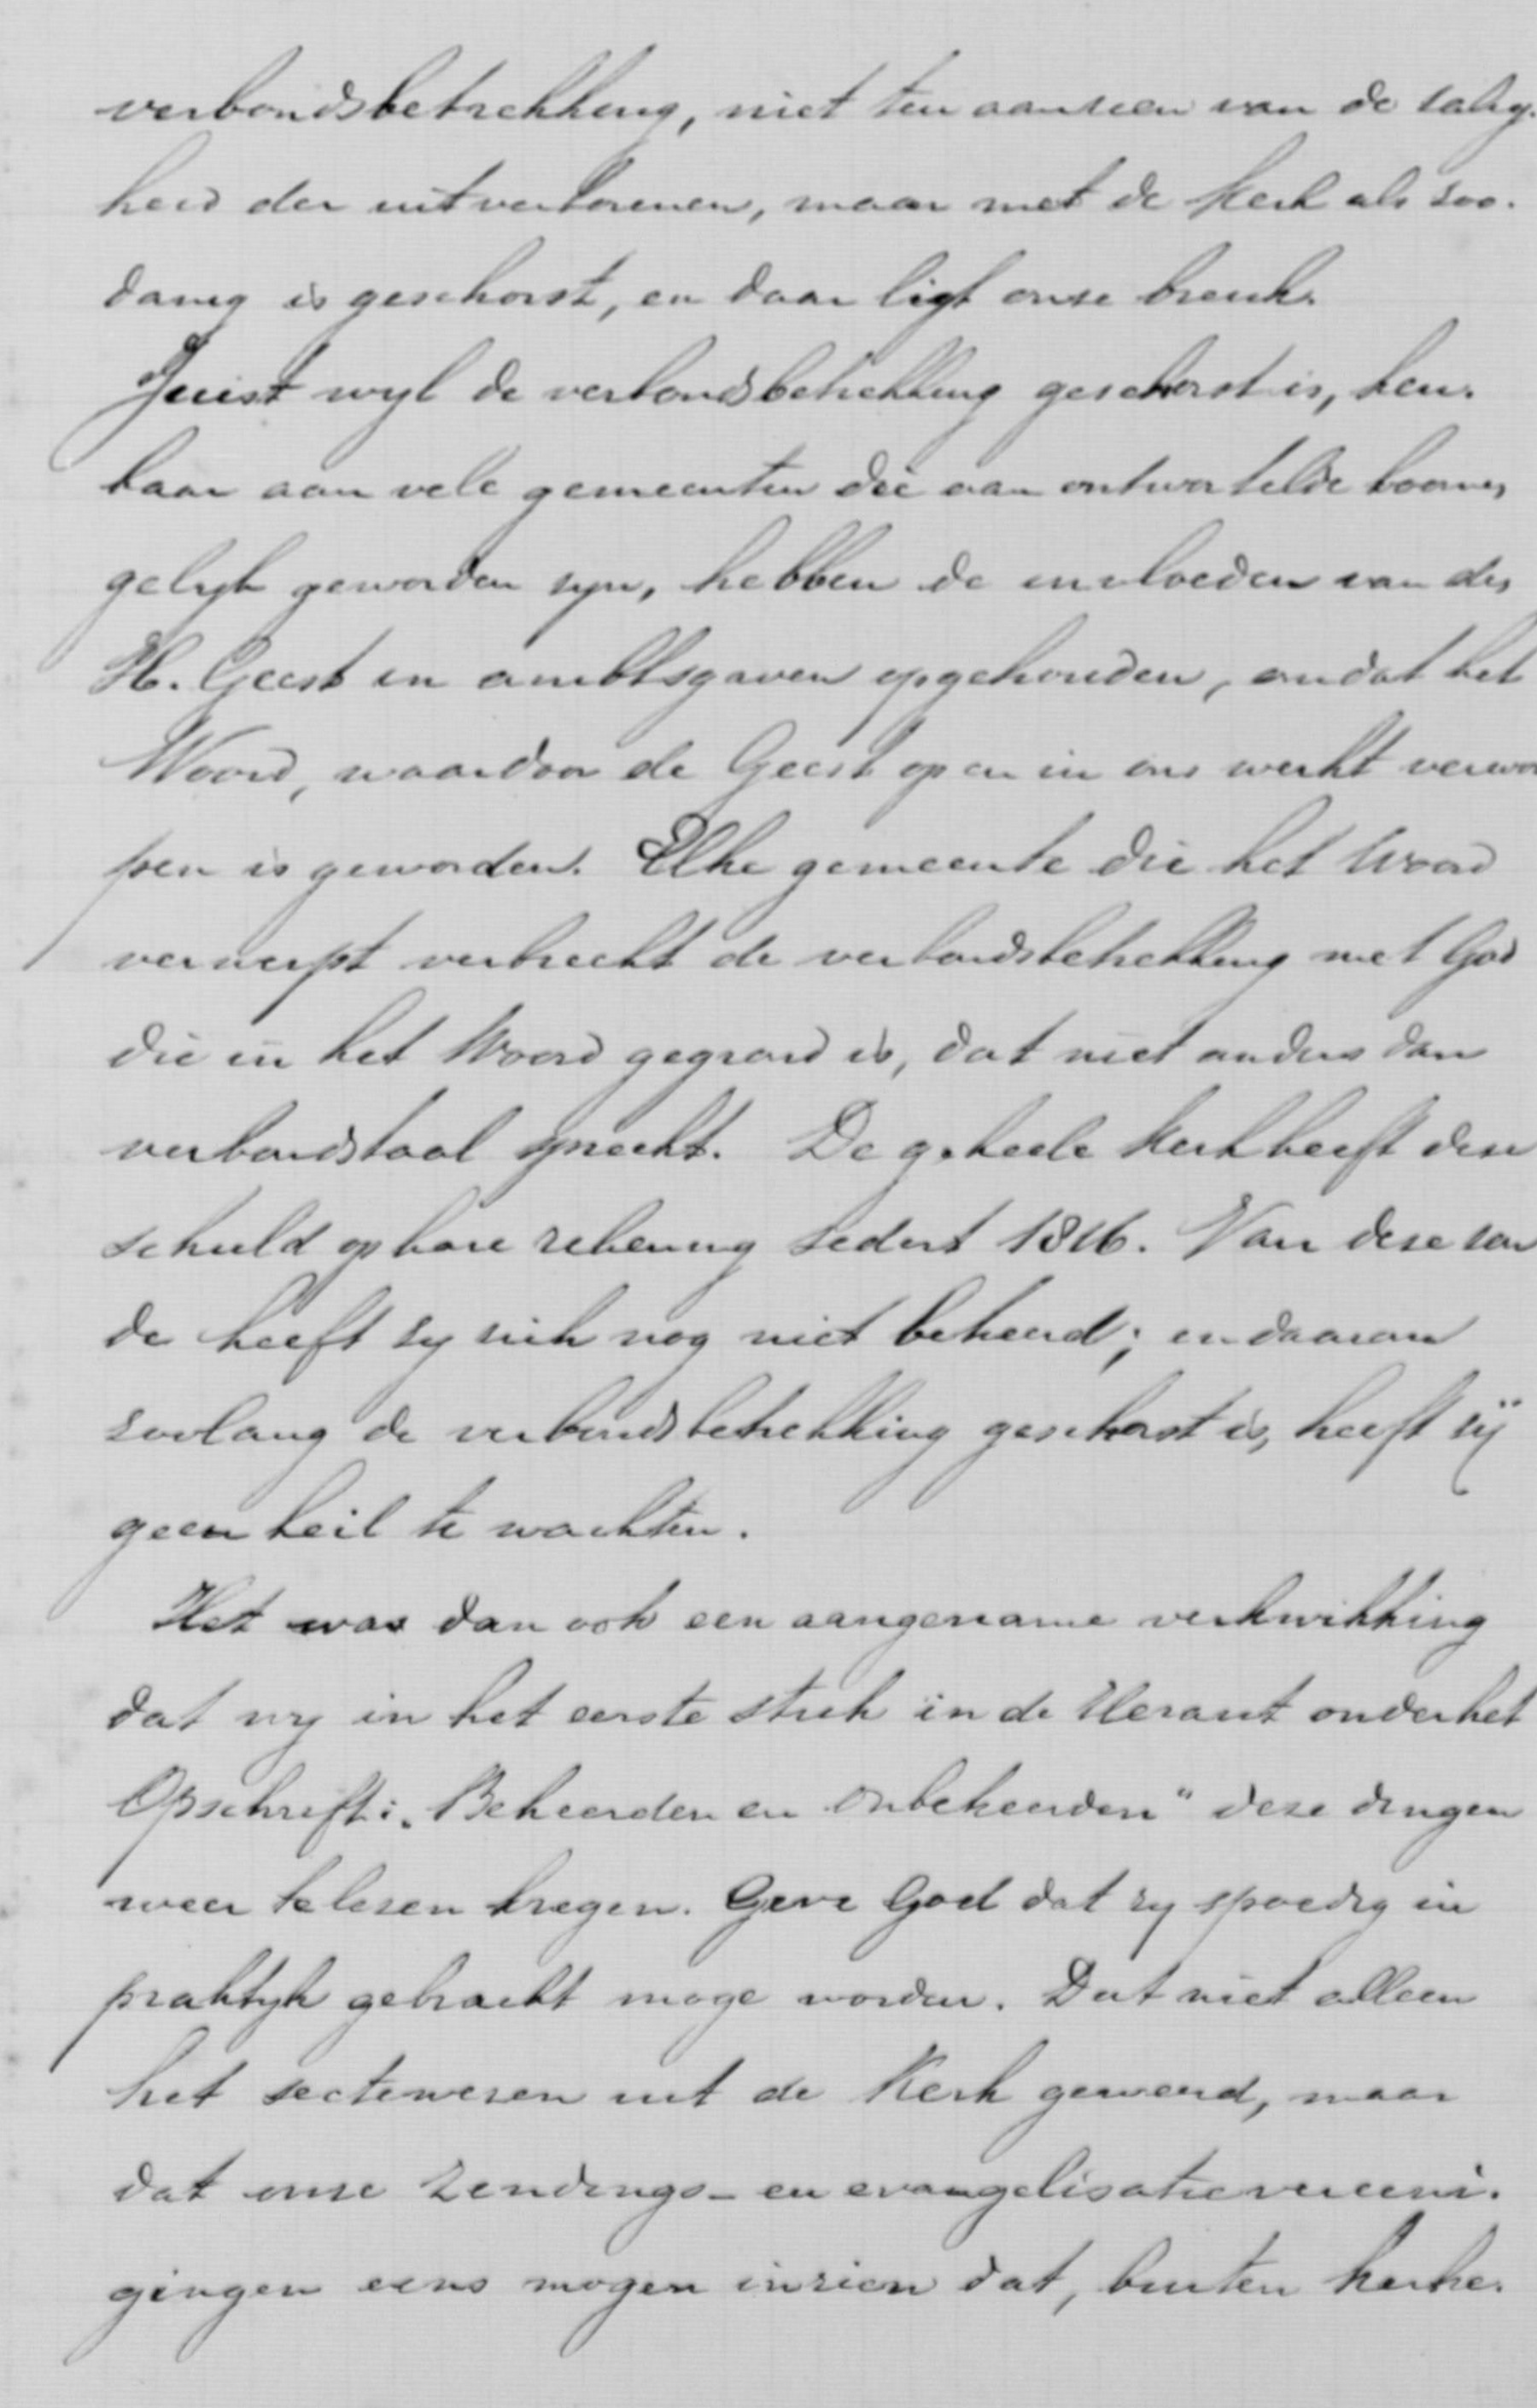 verbondsbetrekking, niet ten aanzien van de zalig-
heid der uitverkorenen, maar met de kerk als zoo-
danig is geschorst, en daar ligt onze breuk.
Juist wyl de verbondsbetrekking geschorst is, ken-
baar aan vele gemeenten die aan ontwortelde boomen
gelyk geworden zyn, hebben de invloeden van den
H. Geest in ambtsgaven opgehouden, omdat het
Woord, waardoor de Geest op en in ons werkt verwor
pen is geworden. Elke gemeente die het Woord
verwerpt verbreekt de verbondsbetrekking met God
die in het Woord gegrond is, dat niet anders dan
verbondstaal spreekt. De geheele kerk heeft deze
schuld op hare rekening sedert 1816. Van deze zon
de heeft zy zich nog niet bekeerd; en daarom
zoolang de verbondsbetrekking geschorst is, heeft zij
geen heil te wachten.
Het was dan ook een aangename verkwikking
dat wy in het eerste stuk in de Heraut onder het
Opschrift: „Bekeerden en Onbekeerden" deze dingen
weer te lezen kregen. Geve God dat zy spoedig in
praktyk gebracht moge worden. Dat niet alleen
het sectewezen uit de Kerk geweerd, maar
dat onze Zendings- en evangelisatievereeni-
gingen eens mogen inzien dat, buiten kerke-